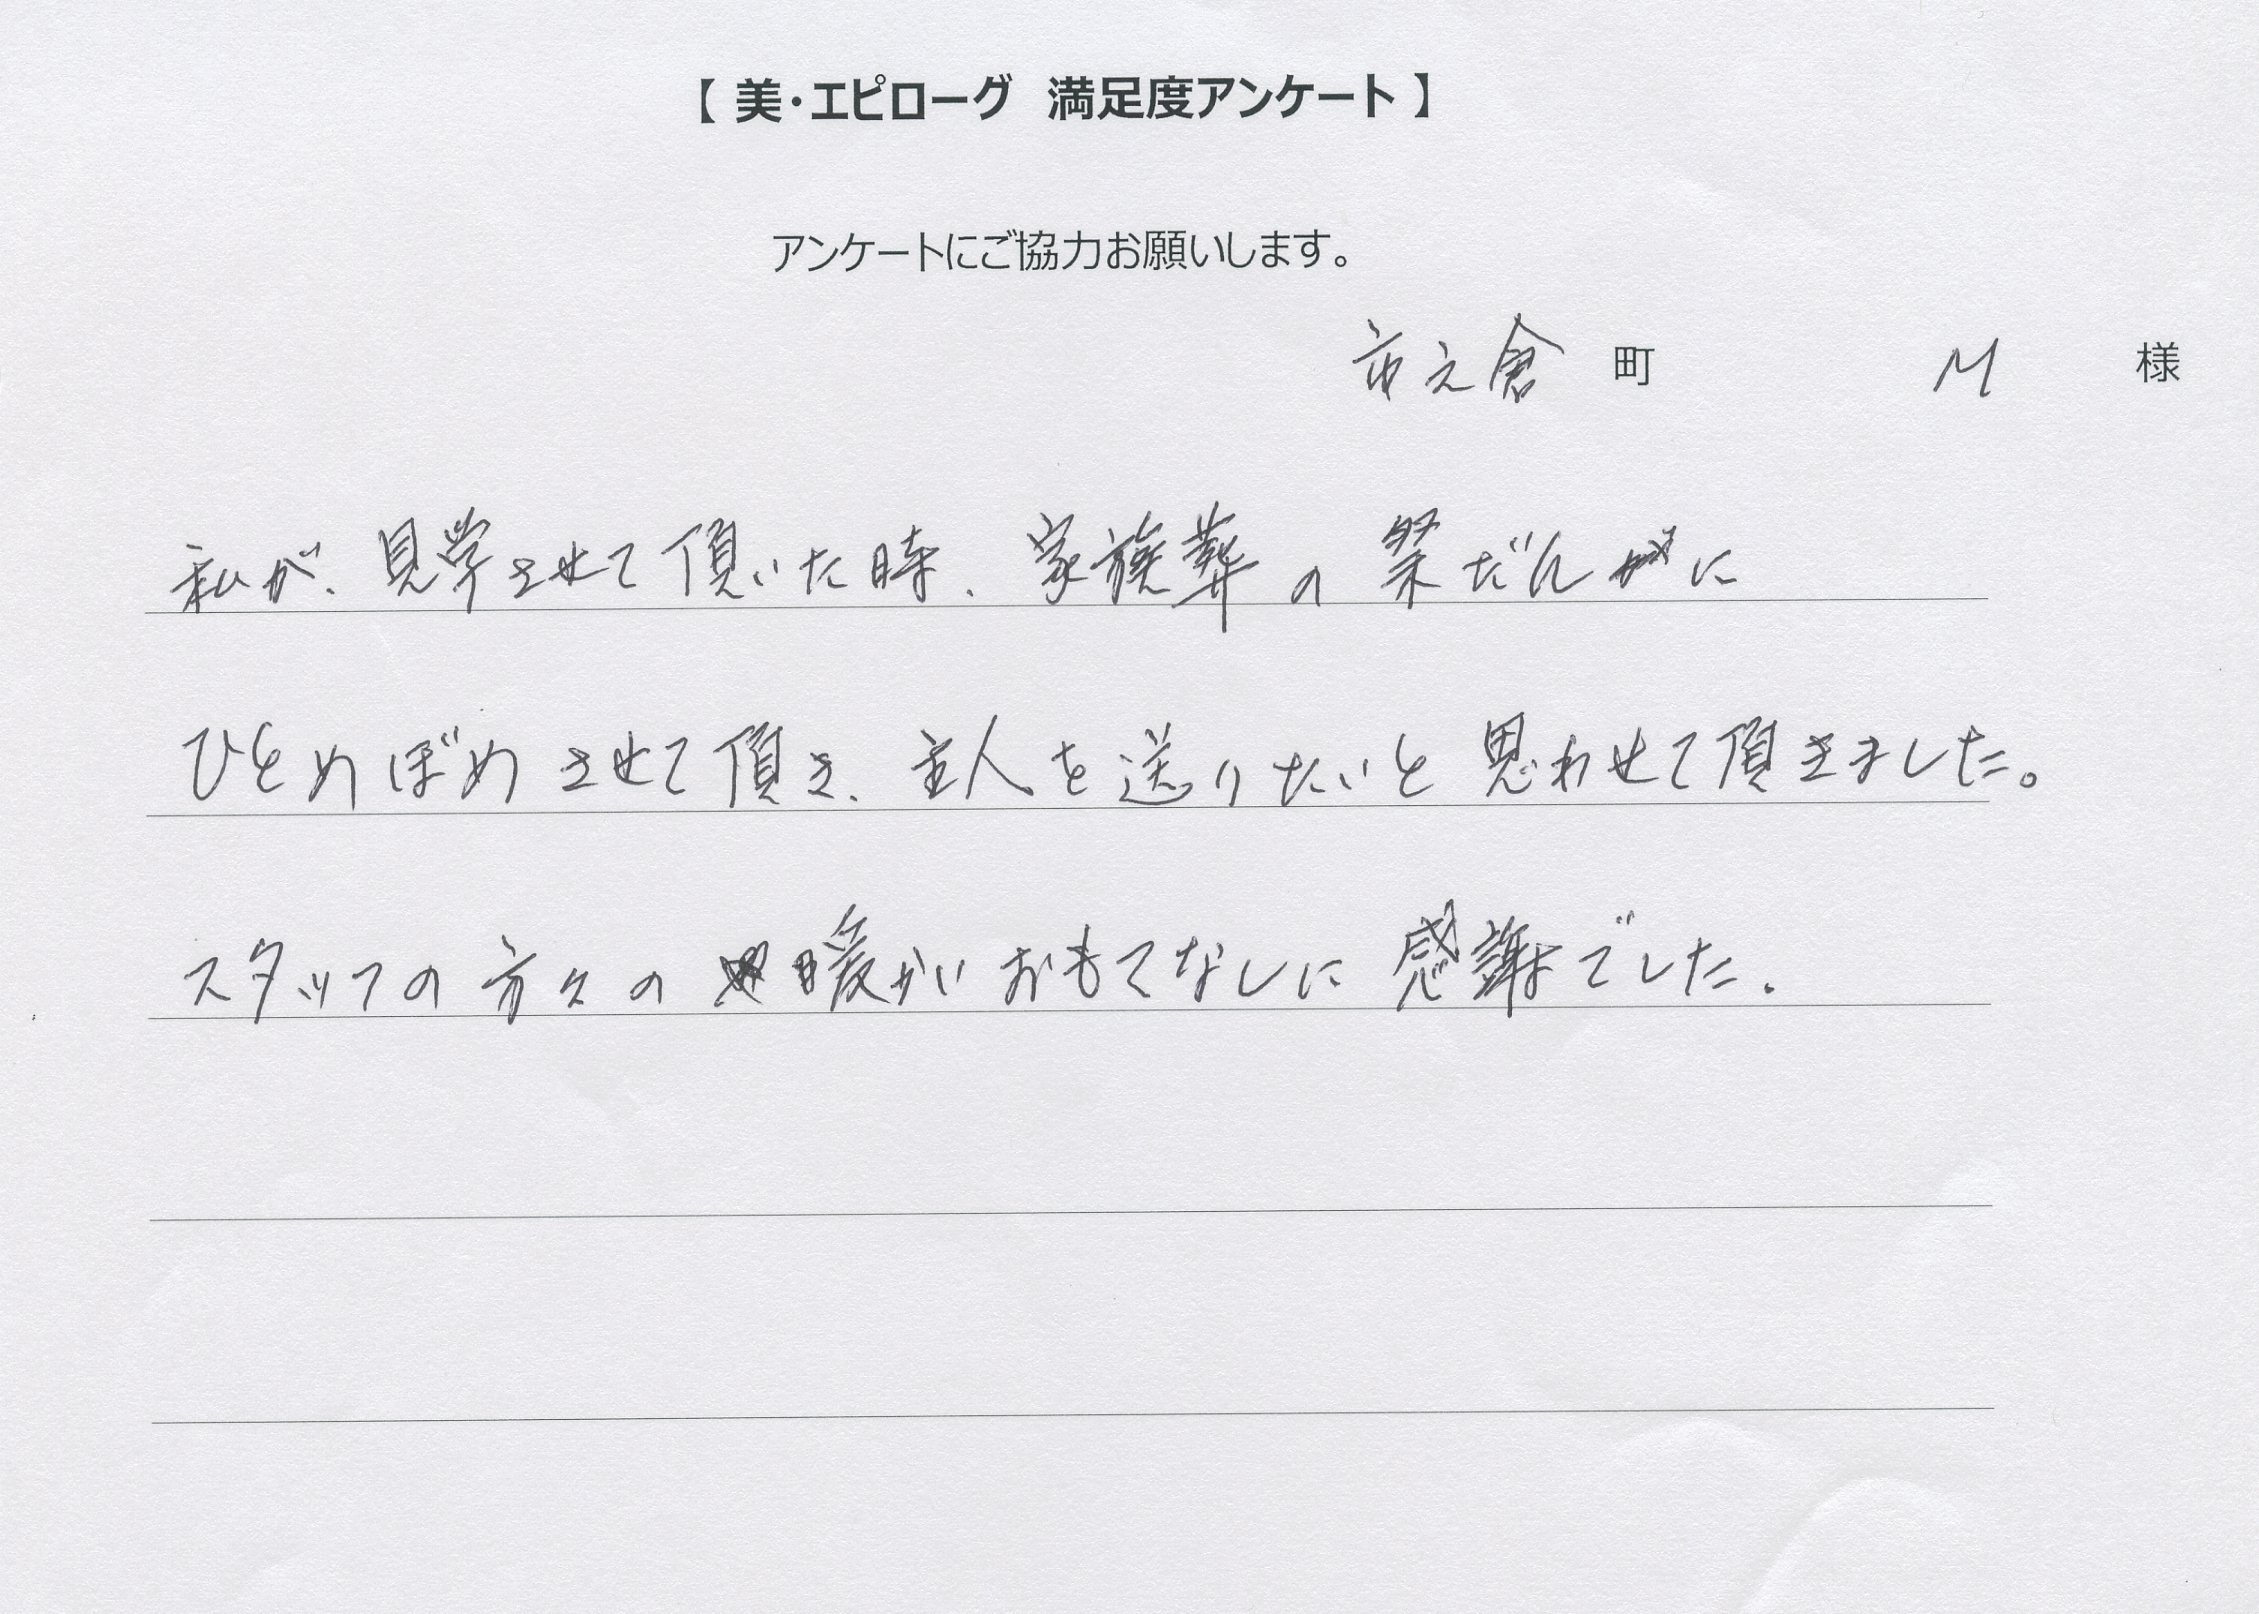 【 美・エピローグ　満足度アンケート 】
アンケートにご協力お願いします。
市之倉 町　M　様
私が、見学させて頂いた時、家族葬の祭だんに
ひとめぼめさせて頂き、主人を送りたいと思わせて頂きました。
スタッフの方々の暖かいおもてなしに感謝でした。